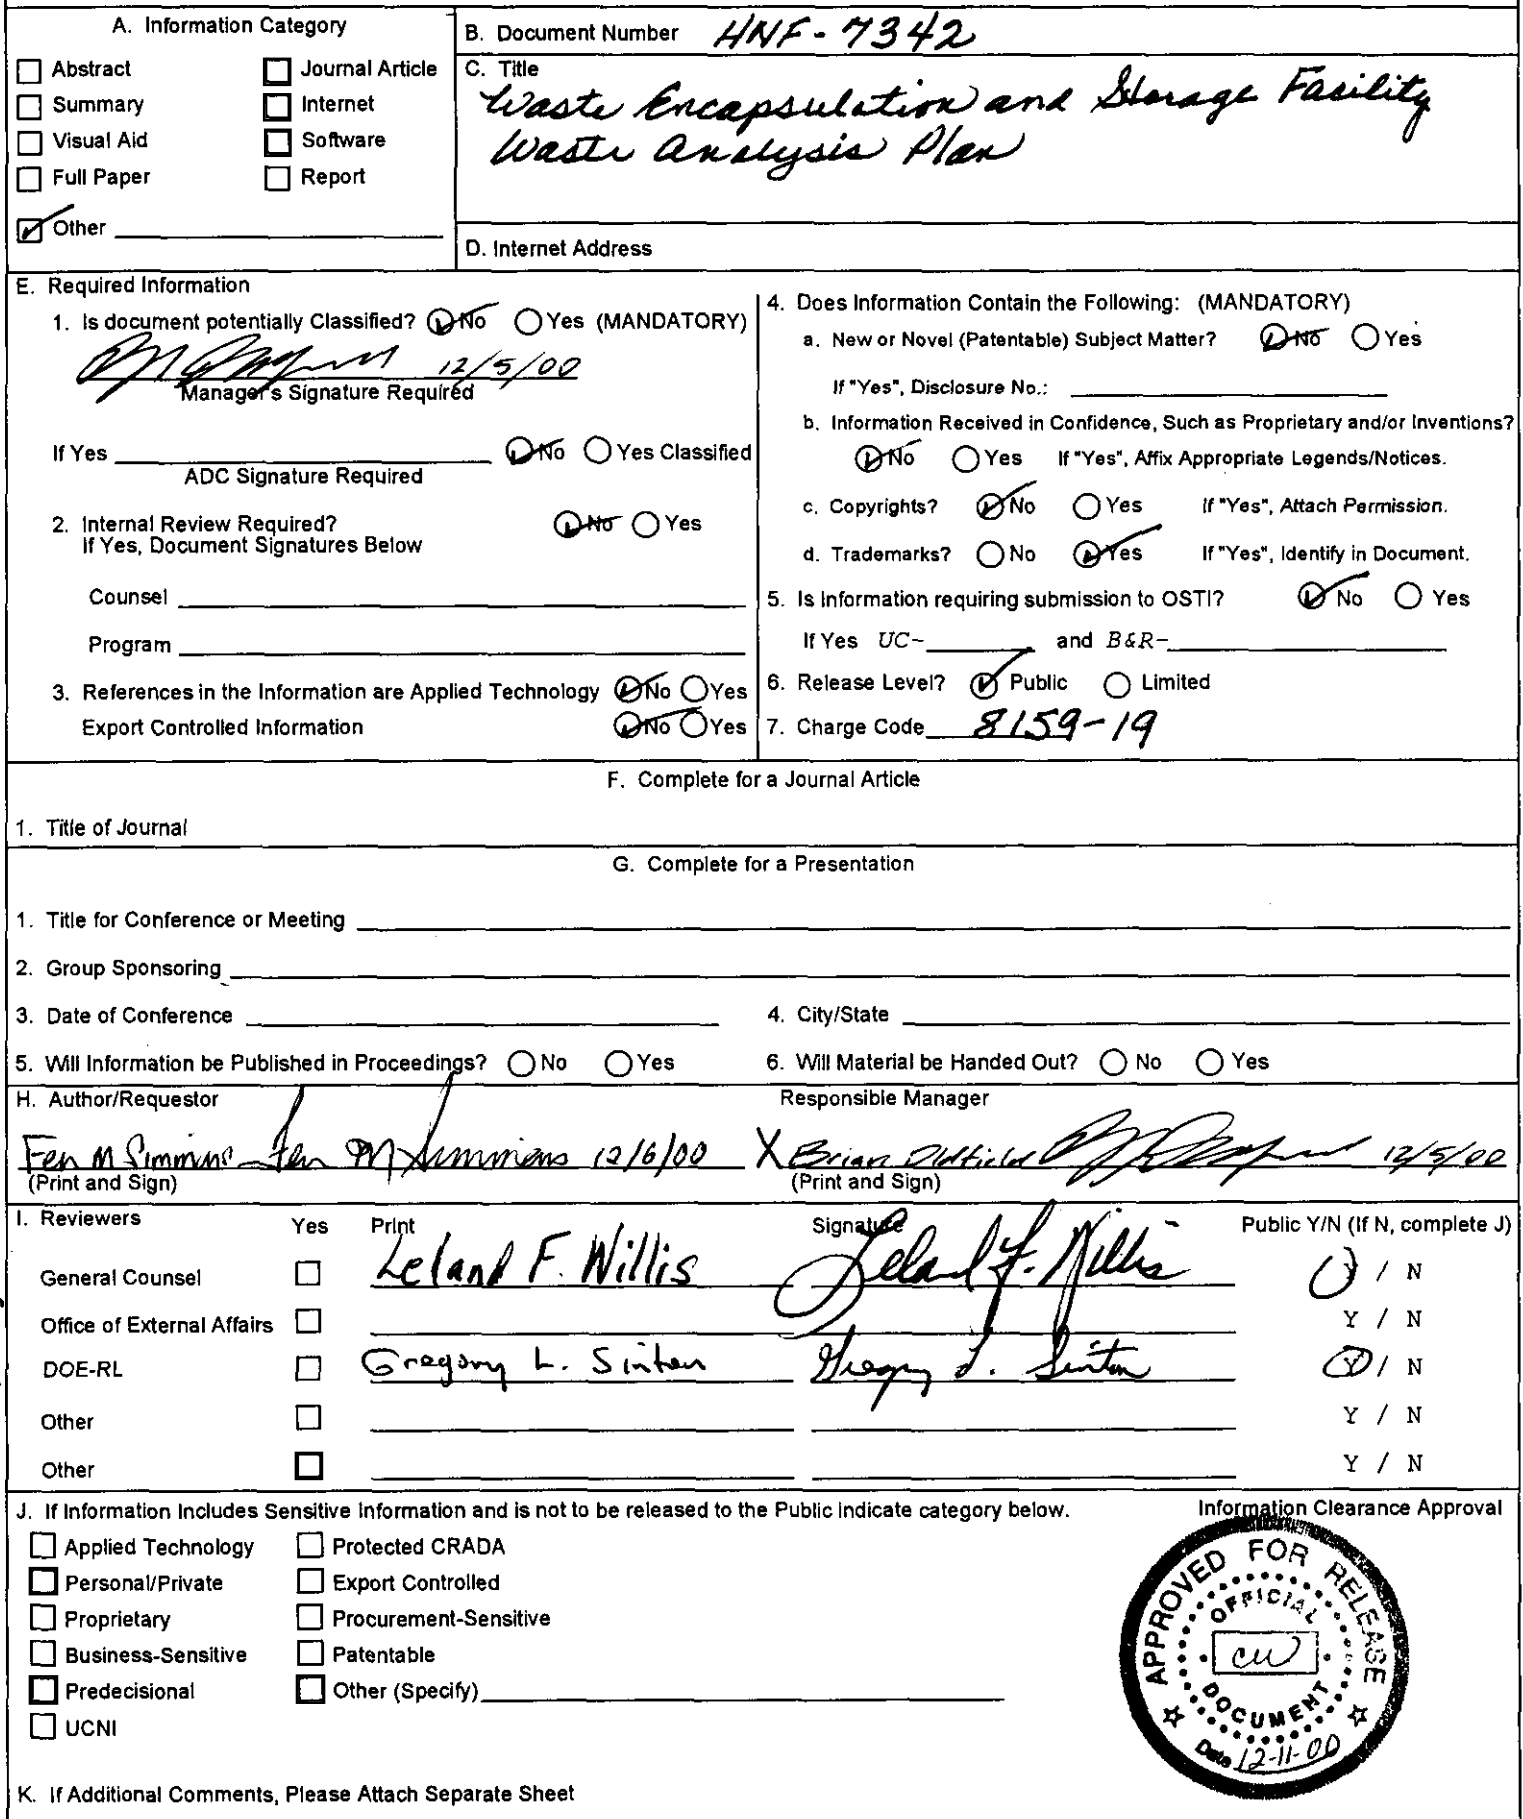 A. Information Category
Abstract Journal Article
Summary Internet
Visual Aid Software
Full Paper Report
Other
B. Document Number HNF-7342
C. Title
Waste Encapsulation and Storage Facility
Waste Analysis Plan
D. Internet Address
E. Required Information
1. Is document potentially Classified? No Yes (MANDATORY)
12/5/00
Manager's Signature Required
If Yes No Yes Classified
ADC Signature Required
2. Internal Review Required? No Yes
If Yes, Document Signatures Below
Counsel
Program
3. References in the Information are Applied Technology No Yes
Export Controlled Information No Yes
4. Does Information Contain the Following: (MANDATORY)
a. New or Novel (Patentable) Subject Matter? No Yes
If "Yes", Disclosure No.:
b. Information Received in Confidence, Such as Proprietary and/or Inventions?
No Yes If "Yes", Affix Appropriate Legends/Notices.
c. Copyrights? No Yes If "Yes", Attach Permission.
d. Trademarks? No Yes If "Yes", Identify in Document.
5. Is Information requiring submission to OSTI? No Yes
If Yes UC- and B&R-
6. Release Level? Public Limited
7. Charge Code 8159-19
F. Complete for a Journal Article
1. Title of Journal
G. Complete for a Presentation
1. Title for Conference or Meeting
2. Group Sponsoring
3. Date of Conference 4. City/State
5. Will Information be Published in Proceedings? No Yes 6. Will Material be Handed Out? No Yes
H. Author/Requestor Responsible Manager
Fen M Simmons Fen M Simmons 12/6/00 X Brian Oldfield 12/5/00
(Print and Sign) (Print and Sign)
I. Reviewers Yes Print Signature Public Y/N (If N, complete J)
General Counsel Leland F. Willis Leland F. Willis Y / N
Office of External Affairs Y / N
DOE-RL Gregory L. Sinton Gregory L. Sinton Y / N
Other Y / N
Other Y / N
J. If Information Includes Sensitive Information and is not to be released to the Public indicate category below. Information Clearance Approval
Applied Technology Protected CRADA
Personal/Private Export Controlled
Proprietary Procurement-Sensitive
Business-Sensitive Patentable
Predecisional Other (Specify)
UCNI
APPROVED FOR RELEASE
OFFICIAL
CW
DOCUMENT
Date 12-11-00
K. If Additional Comments, Please Attach Separate Sheet